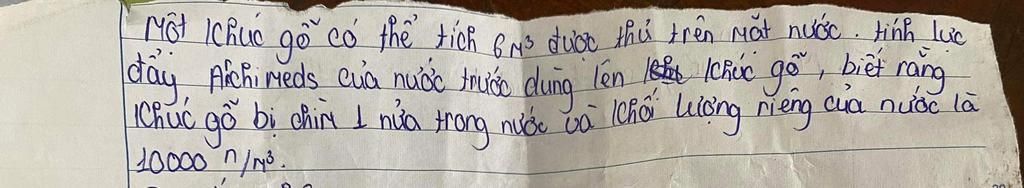 Một khúc gỗ có thể tích 6m³ được thả trên mặt nước. tính lực
đẩy Archimeds của nước trước dụng lên khúc gỗ, biết rằng
khúc gỗ bị chìm 1 nửa trong nước và khối lượng riêng của nước là
10000 n/m³.